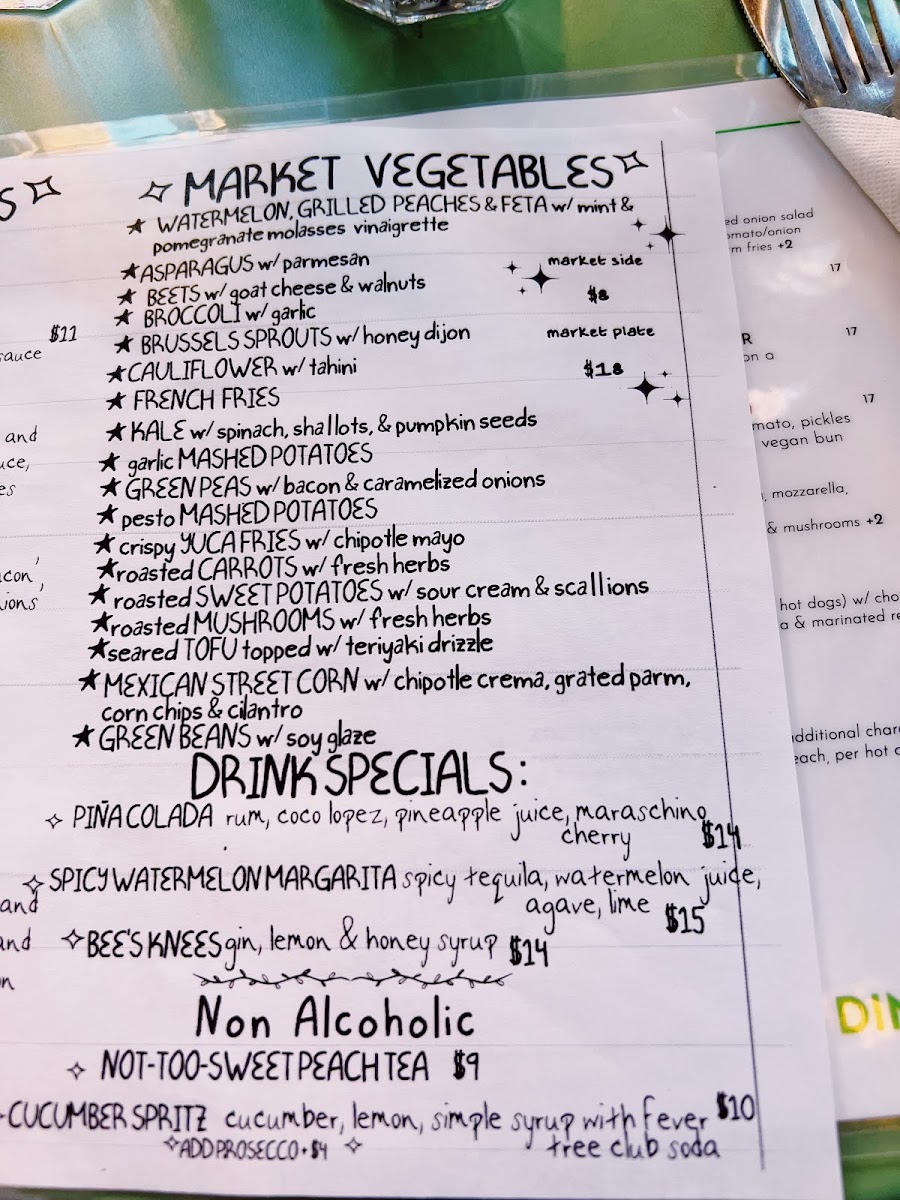 MARKET VEGETABLES
★ WATERMELON, GRILLED PEACHES & FETA w/ mint &
pomegranate molasses vinaigrette
★ ASPARAGUS w/ parmesan
★ BEETS w/ goat cheese & walnuts
★ BROCCOLI w/ garlic
★ BRUSSELS SPROUTS w/ honey dijon
★ CAULIFLOWER w/ tahini
★ FRENCH FRIES
★ KALE w/ spinach, shallots, & pumpkin seeds
★ garlic MASHED POTATOES
★ GREEN PEAS w/ bacon & caramelized onions
★ pesto MASHED POTATOES
★ crispy YUCA FRIES w/ chipotle mayo
★ roasted CARROTS w/ fresh herbs
★ roasted SWEET POTATOES w/ sour cream & scallions
★ roasted MUSHROOMS w/ fresh herbs
★ seared TOFU topped w/ teriyaki drizzle
★ MEXICAN STREET CORN w/ chipotle crema, grated parm,
corn chips & cilantro
★ GREEN BEANS w/ soy glaze
market side
$8
market plate
$18
DRINK SPECIALS:
PIÑA COLADA rum, coco lopez, pineapple juice, maraschino
cherry $14
SPICY WATERMELON MARGARITA spicy tequila, watermelon juice,
agave, lime $15
BEE'S KNEES gin, lemon & honey syrup $14
Non Alcoholic
NOT-TOO-SWEET PEACH TEA $9
CUCUMBER SPRITZ cucumber, lemon, simple syrup with Fever $10
tree club soda
ADD PROSECCO • $4
S
$11
sauce
and
and
and
onion salad
fries +2
17
17
R
on a
17
pickles
vegan bun
mozzarella,
& mushrooms +2
hot dogs) w/
& marinated
each, per hot